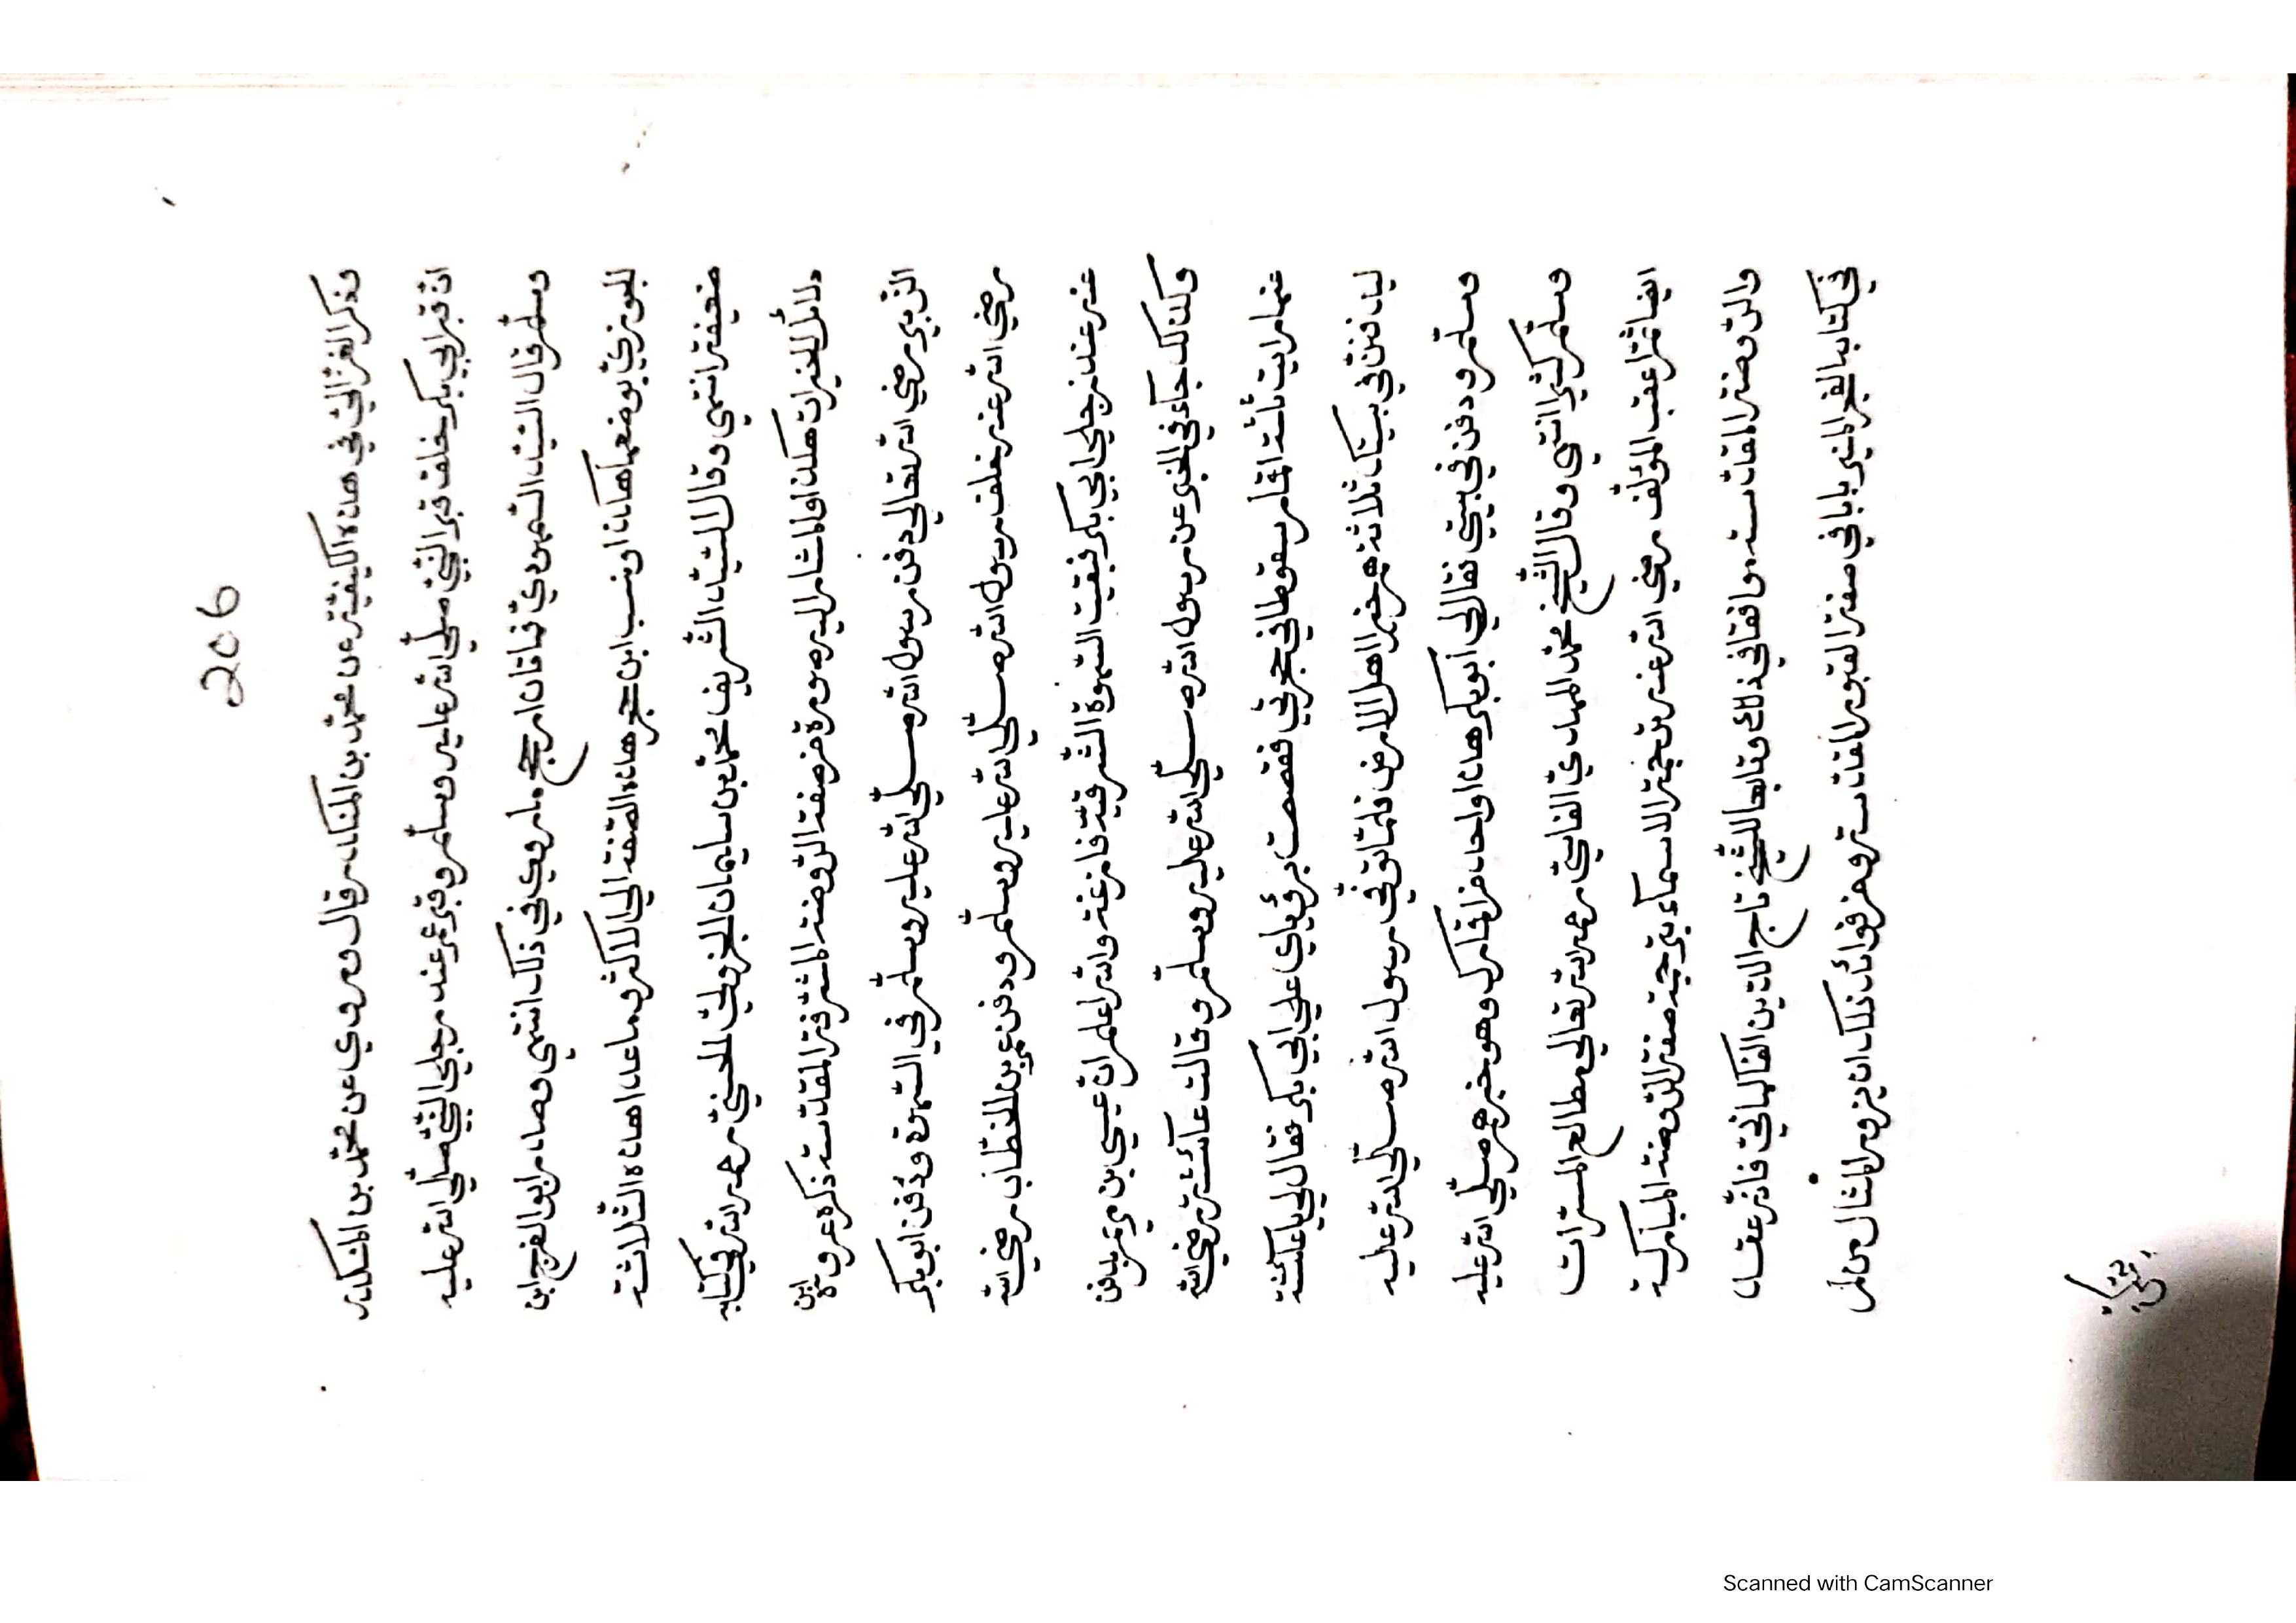 206
وذكر الغزّالي في هذه الكيفيّة عن محمّد بن المنكدر قال وروي عن محمّد بن المنكدر
انّ قبر ابي بكر خلف قبر النّبيّ صلّي الله عليه وسلّم وقبر عمر عند رجلي النّبيّ صلّي الله عليه
وسلّم قال السّيّد السّمهوديّ فهاتان ارجح ما روي في ذلك انتهي وصدر ابو الفرج ابن
الجوزيّ بوضعها هكذا ونسب ابن حجر هذه الصّفة الي الاكثر وما عدا هذه الثّلاثة
ضعيفة انتهي وقال السّيّد الشّريف محمّد بن سليمان الجزوليّ الحسنيّ رحمه الله في كتابه
دلائل الخيرات هكذا والمشار اليه صورة من صفة الرّوضة المشرّفة المقدّسة ذكره عروة ابن
الزّبير رضي الله تعالي دفن رسول الله صلّي الله عليه وسلّم في السّهوة ودفن ابو بكر
رضي الله عنه خلف رسول الله صلّي الله عليه وسلّم ودفن عمر بن الخطّاب رضي الله
عنه عند رجلي ابي بكر فبقيت السّهوة الشّرقيّة فارغة والله اعلم انّ عيسي بن مريم يدفن
وكذلك جآء في الخبر عن رسول الله صلّي الله عليه وسلّم وقالت عآئشة رضي الله
عنها رايت ثلثة اقمار سقوطا في حجرتي فقصصت رؤياي علي ابي بكر فقال لي يا عآئشة
ليدفننّ في بيتك ثلاثة هم خير اهل الارض فلمّا توفّي رسول الله صلّي الله عليه
وسلّم ودفن في بيتي فقال لي أبو بكر هذا واحد من اقمارك وهو خيرهم صلّي الله عليه
وسلّم كثيرا انتهي وقال الشّيخ محمّد المهديّ الفاسيّ رحمه الله تعالي مطالع المسرّات
ايضا ثمّ اعقب المؤلّف رضي الله عنه ترجمة الاسمآء بترجمة صفة الرّوضة المباركة
والرّوضة المقدّسة موافقا في ذلك وتابعا للشّيخ تاج الدّين الفاكهانيّ فانّه عقد
في كتابه الفجر المنير بابا في صفة القبور المقدّسة ومن فوائد ذلك ان يزور المثال من لم